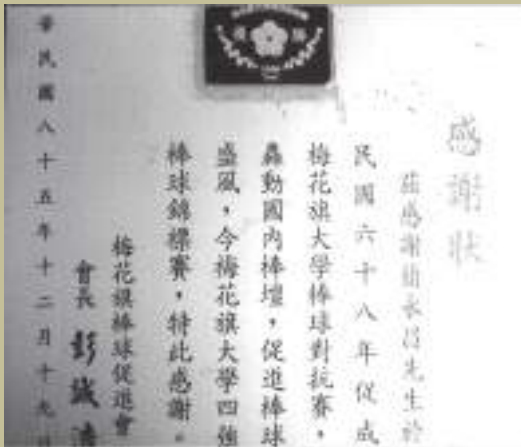 感謝狀
茲感謝簡永昌先生於
民國六十八年促成
梅花旗大學棒球對抗賽，
轟動國內棒壇，促進棒球
盛風，今梅花旗大學四強
棒球錦標賽，特此感謝。
梅花旗棒球促進會
會長 彭誠
華民國八十五年十二月十九日